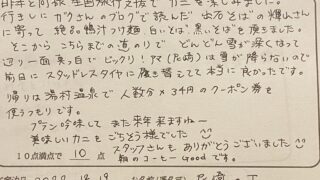 昨年と同様 全国旅行支援で カニを楽しみました。
行きしに ガクさんのブログで読んだ 出石そばの 輝山さん
に寄って 絶品 鴨汁つけ麺 白いそば、黒いそばを 食べました。
そこから こちらまでの道のりで どんどん雪が深くなって
辺り一面 真っ白でビックリ! 八(尼崎)は雪が降らないので
前日に スタッドレスタイヤに履き替えてて 本当に良かったです。
帰りは湯村温泉で 人数分×3千円のクーポン券を
使うつもりです。
プラン吟味して また来年来ますね〜
美味しいカニを ごちそう様でした
スタッフさんも ありがとうございました
10点満点で 10 点
朝のコーヒーGoodです。